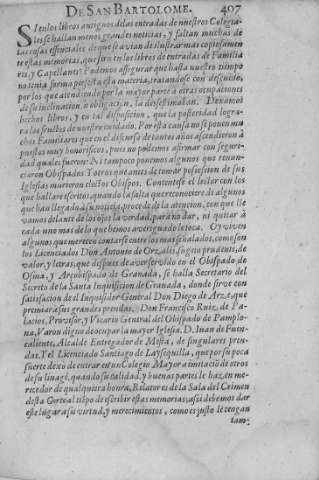 DE SAN BARTOLOME. 407
Si en los libros antiguos de las entradas de nuestros Colegia-
les se hallan menos grandes noticias, y faltan muchas de
las cosas essenciales de que se avian de ilustrar mas copiosamen
te estas memorias, que si en los libros de entradas de Familia
res, y Capellanes: Podemos assegurar que hasta nuestro tiempo
no tenia forma perfecta esta materia, tratandose con descuido,
por los que atendiendo por la mayor parte à otras ocupaciones
de su inclinacion, ò obligacion, la desestimaban. Dexamos
hechos libros, y en tal disposicion, que la posteridad logra-
ra los frutos de nuestro cuidado. Por esta causa no se ponen mu
chos Familiares que en el discurso de tantos años ascendieron à
puestos muy honorificos, pues no podemos afirmar con seguri-
dad quales fueron: Ni tampoco ponemos algunos que renun-
ciaron Obispados. Y otros que antes de tomar possession de sus
Iglesias murieron electos Obispos. Contentese el lector con los
que hallare escritos, quando la falta que reconociere de algunos
que han llegado à su noticia, procede de la atencion, con que lle
vamos delante de los ojos la verdad, para no dar, ni quitar à
cada uno mas de lo que hemos averiguado le toca. Oy viven
algunos que merecen contarse entre los mas señalados, como son
los Licenciados Don Antonio de Orzales sugeto prudente, de
valor, y letras, que despues de aver servido en el Obispado de
Osma, y Arzobispado de Granada, se halla Secretario del
Secreto de la Santa Inquisicion de Granada, donde sirve con
satisfacion del Inquisidor General Don Diego de Arze, que
premiarà sus grandes prendas. Don Francisco Ruiz, de Pa-
lacios, Provisor, y Vicario General del Obispado de Pamplo-
na, Varon digno de ocupar la mayor Iglesia. D. Iuan de Fuen-
caliente, Alcalde Entregador de Mesta, de singulares pren-
das. Y el Licenciado Santiago de Laysequilla, que por su poca
suerte dexò de entrar en un Colegio Mayor à imitaciò de otros
de su linage, quando su calidad, y buenas partes le haz, en me-
recedor de qualquiera honra, Relator es de la Sala del Crimen
desta Corte al tiépo de escribir estas memorias, assi debemos dar
este lugar à su virtud, y merecimientos, como es justo le tengan
tam-